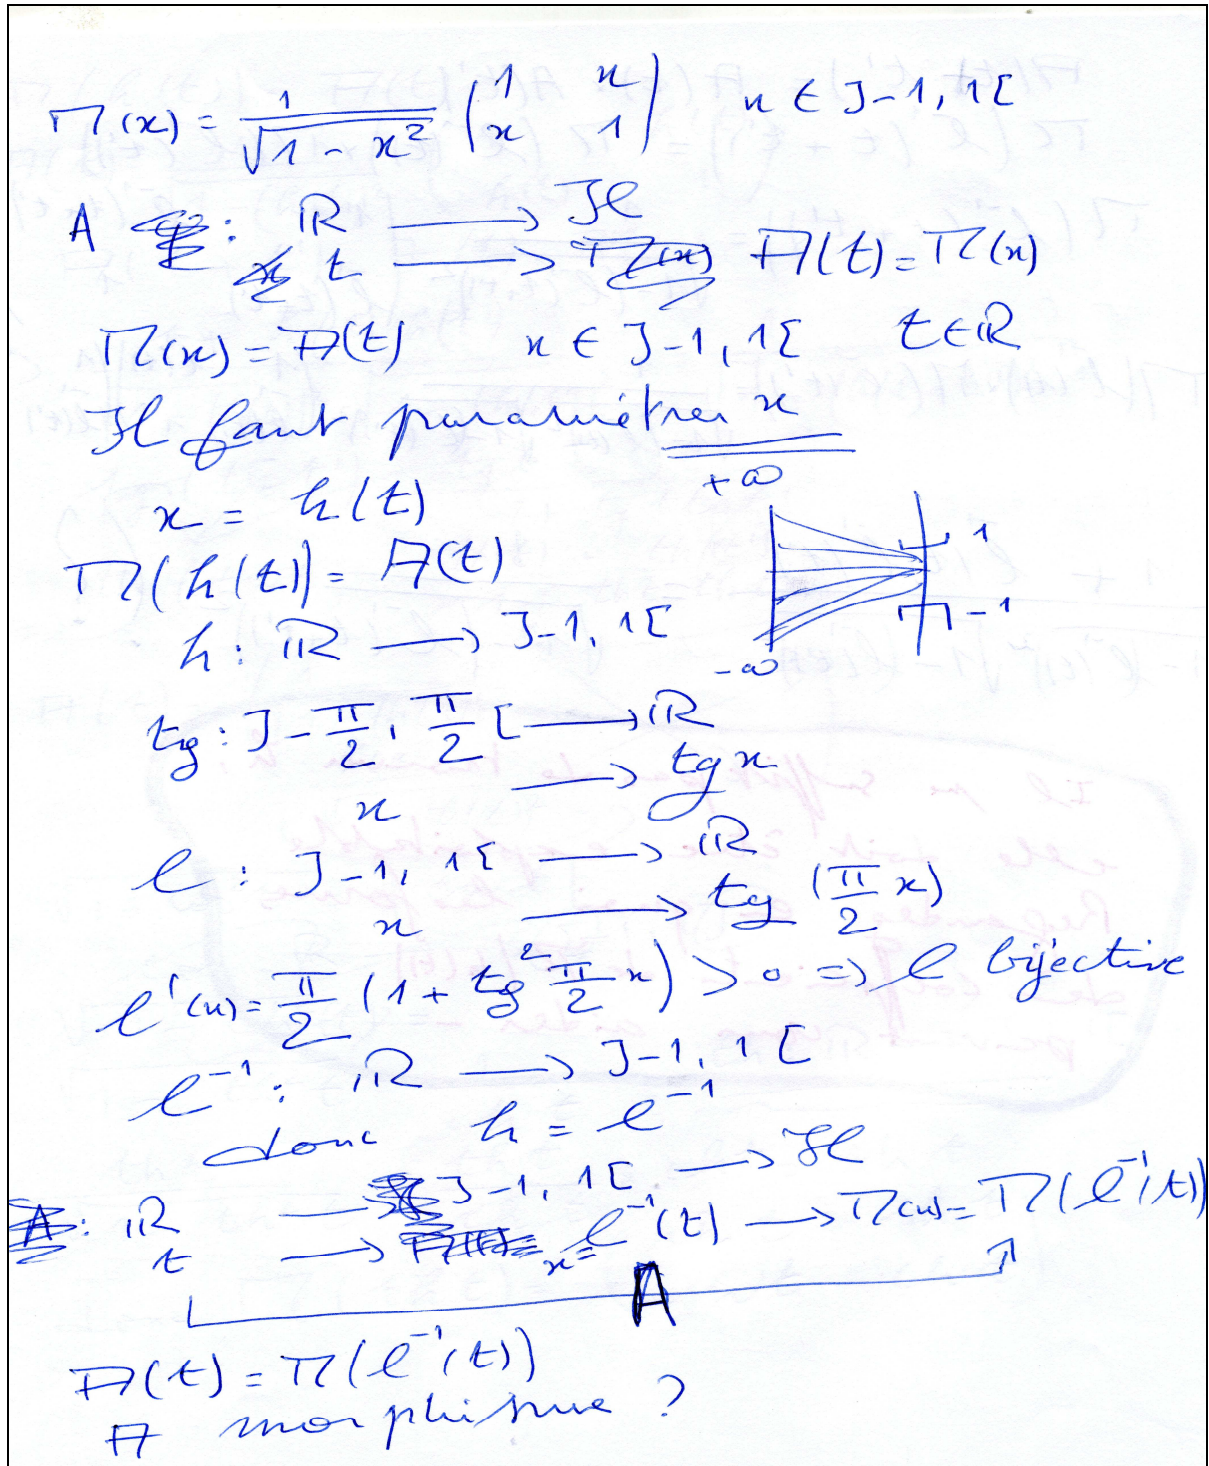 M(x) = 1/√(1 - x²) (1 x
x 1) x ∈ ]-1, 1[
A : ℝ ⟶ ℋ
t ⟶ A(t) = M(x)
M(x) = A(t) x ∈ ]-1, 1[ t ∈ ℝ
Il faut paramétrer x
x = h(t)
+∞
1
-1
-∞
M(h(t)) = A(t)
h : ℝ ⟶ ]-1, 1[
tg : ]-π/2, π/2[ ⟶ ℝ
x ⟶ tg x
l : ]-1, 1[ ⟶ ℝ
x ⟶ tg (π/2 x)
l'(x) = π/2 (1 + tg² π/2 x) > 0 ⇒ l bijective
l⁻¹ : ℝ ⟶ ]-1, 1[
donc h = l⁻¹
: ℝ ⟶ ]-1, 1[ ⟶ ℋ
t ⟶ x = l⁻¹(t) ⟶ M(x) = M(l⁻¹(t))
A
A(t) = M(l⁻¹(t))
A morphisme ?